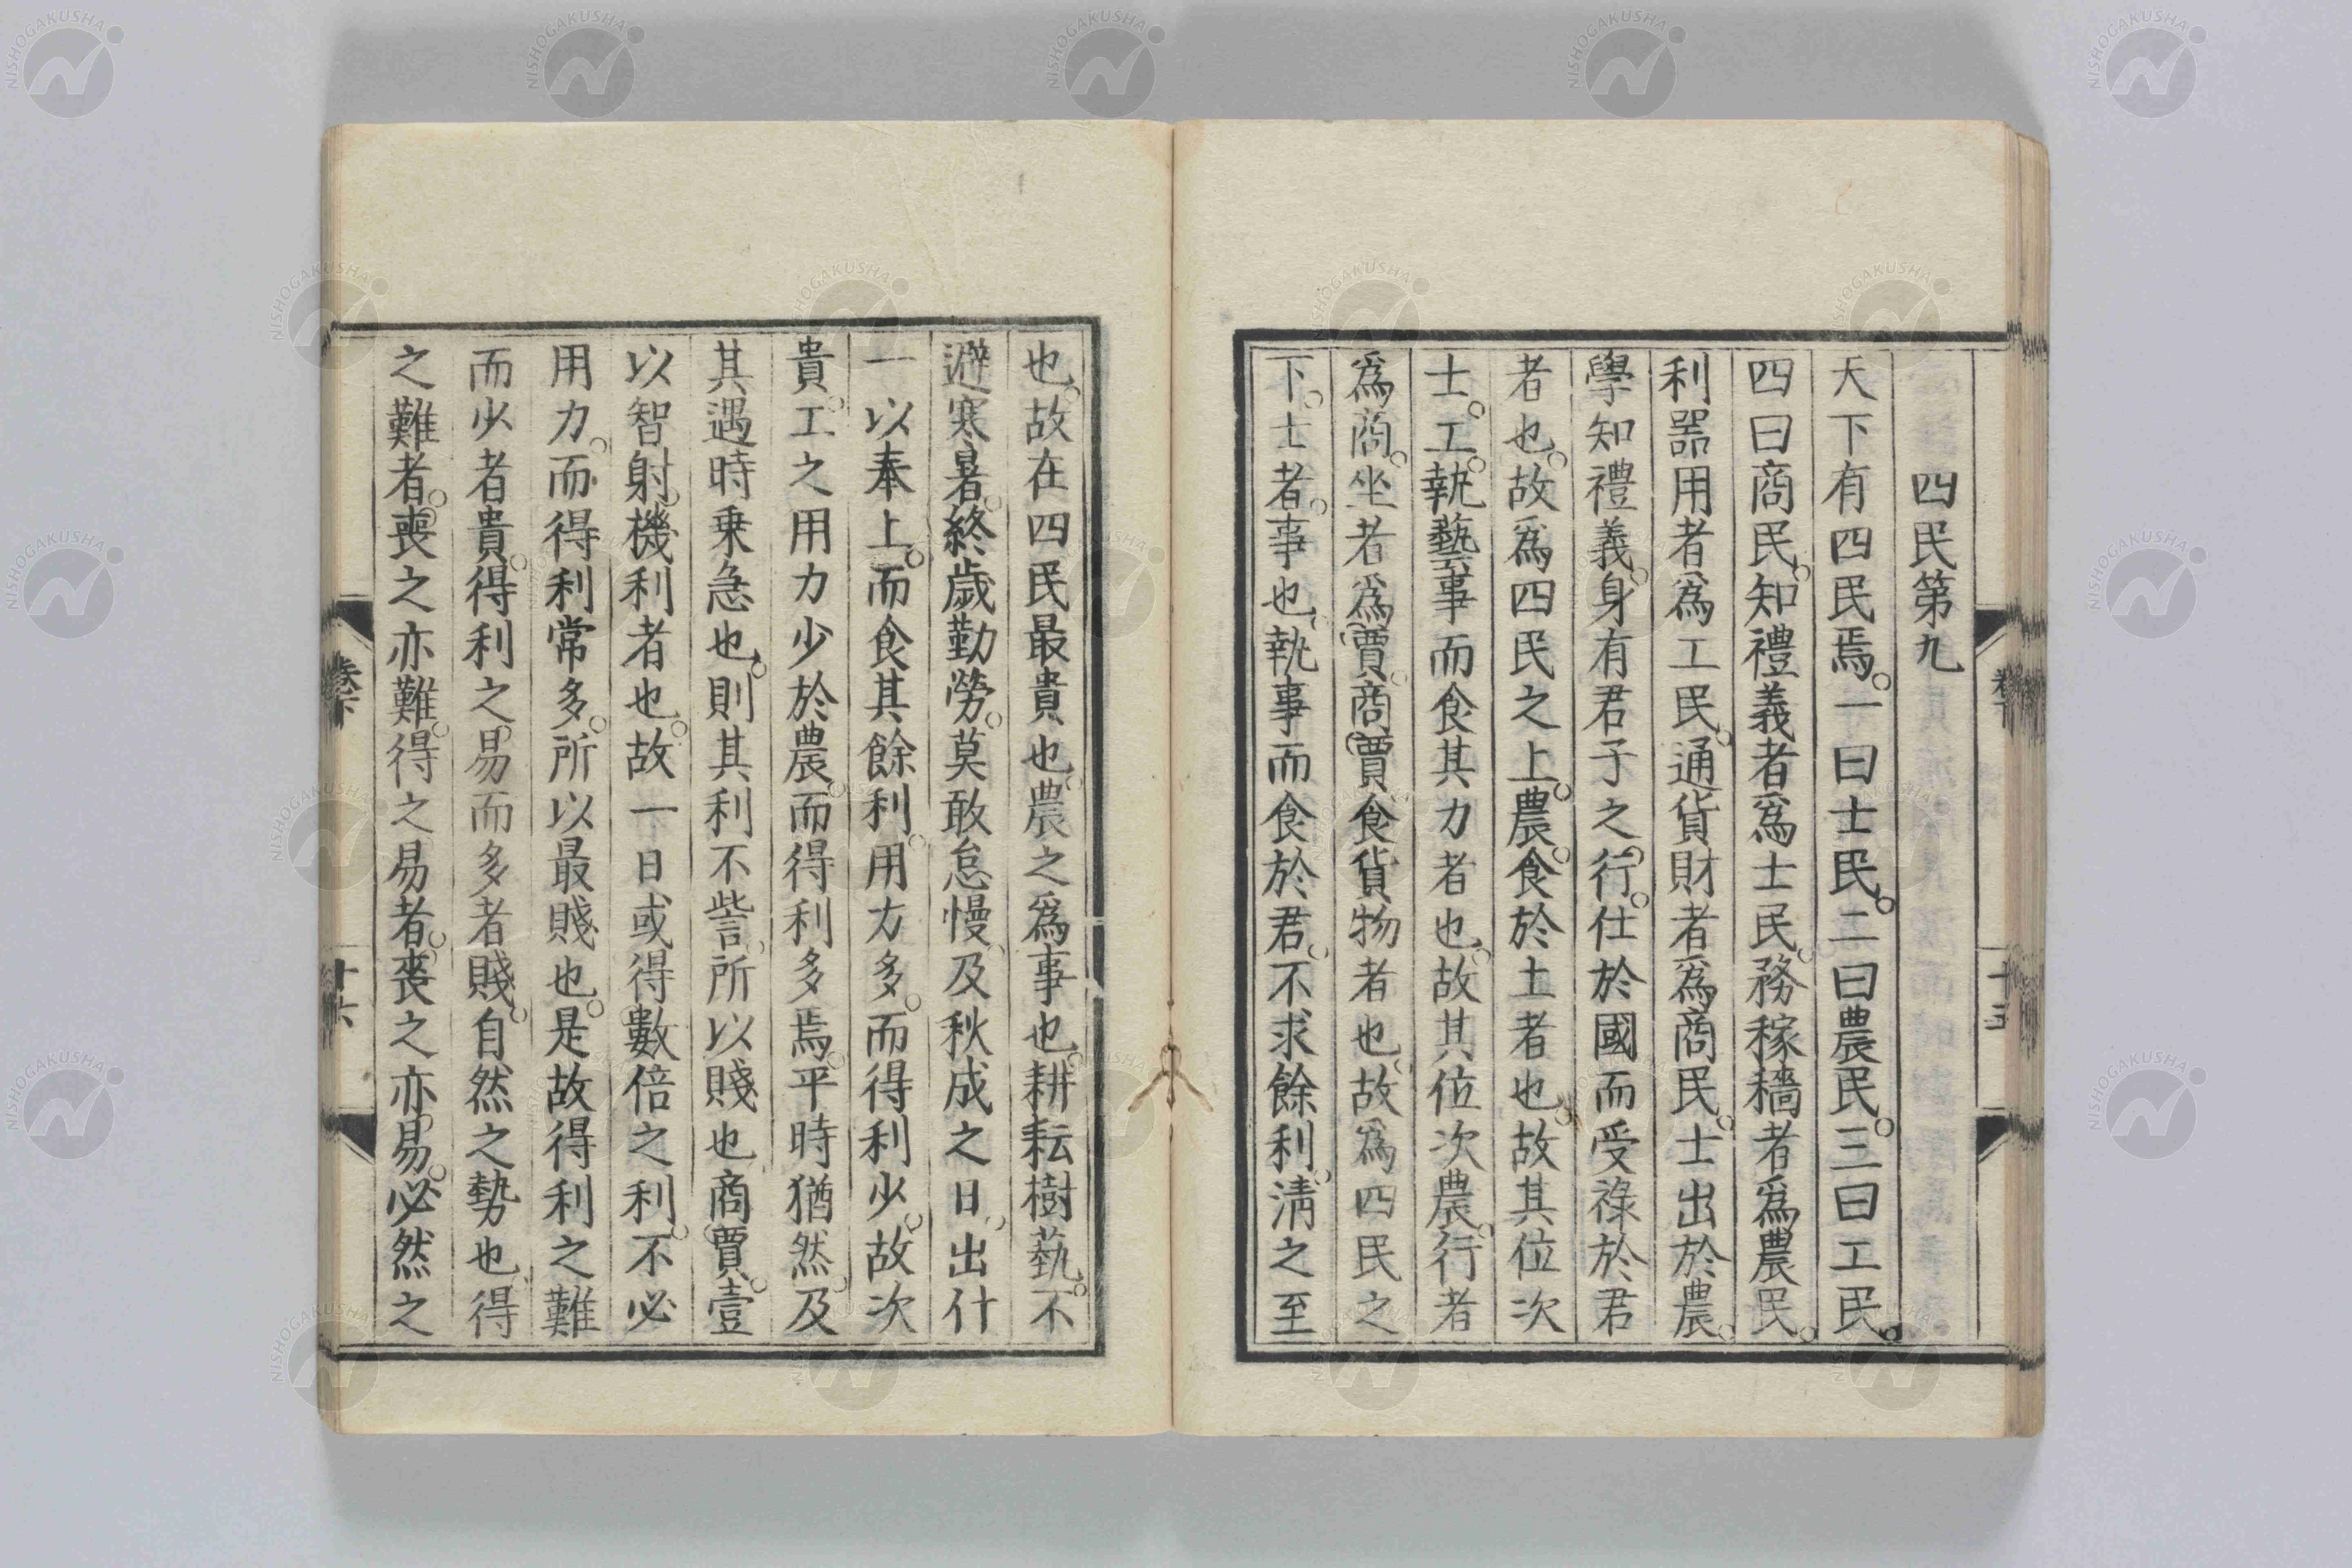 四民第九
天下有四民焉。一曰士民。二曰農民。三曰工民。
四曰商民。知禮義者爲士民。務稼穡者爲農民。
利器用者爲工民。通貨財者爲商民。士出於農。
學知禮義。身有君子之行。仕於國而受祿於君
者也。故爲四民之上。農食於土者也。故其位次
士。工執藝事而食其力者也。故其位次農。行者
爲商。坐者爲賈。商賈食貨物者也。故爲四民之
下。士者。事也。執事而食於君。不求餘利。淸之至
卷下
十五
也。故在四民最貴也。農之爲事也。耕耘樹藝。不
避寒暑。終歲勤勞。莫敢怠慢。及秋成之日。出什
一以奉上。而食其餘利。用力多。而得利少。故次
貴。工之用力少於農。而得利多焉。平時猶然。及
其遇時乗急也。則其利不訾。所以賤也。商賈。壹
以智射。機利者也。故一日或得數倍之利。不必
用力。而得利常多。所以最賤也。是故得利之難
而少者貴。得利之易而多者賤。自然之勢也。得
之難者。喪之亦難。得之易者。喪之亦易。必然之
卷下
十六
NISHOGAKUSHA